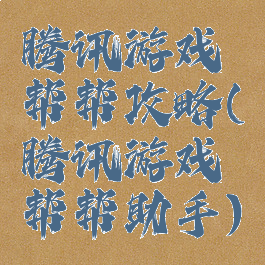 腾讯游戏
帮帮攻略(
腾讯游戏
帮帮助手)